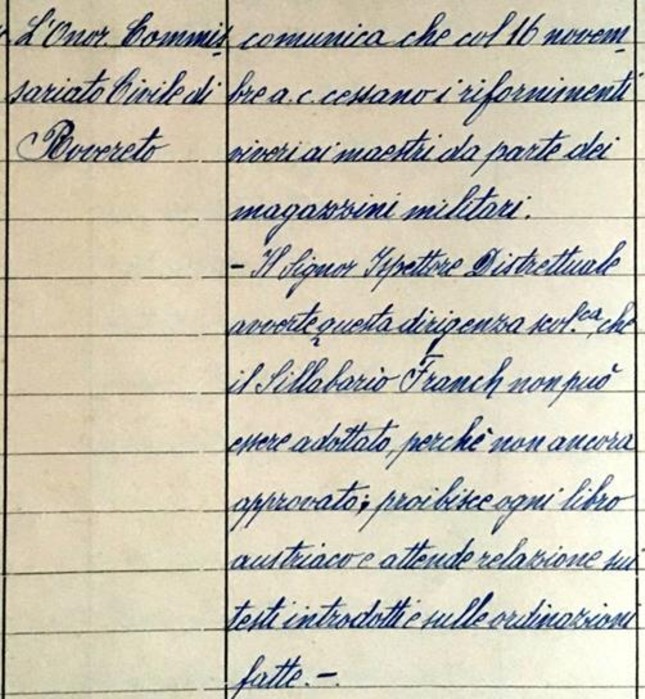 L'Onor. Commis
sariato Civile di
Rovereto
comunica che col 16 novem
bre a. c. cessano i rifornimenti
viveri ai maestri da parte dei
magazzini militari.
- Il Signor Ispettore Distrettuale
avverte questa dirigenza scol.ca, che
il Sillabario Franch non può
essere adottato, perchè non ancora
approvato; proibisce ogni libro
austriaco e attende relazione sui
testi introdotti e sulle ordinazioni
fatte. -.